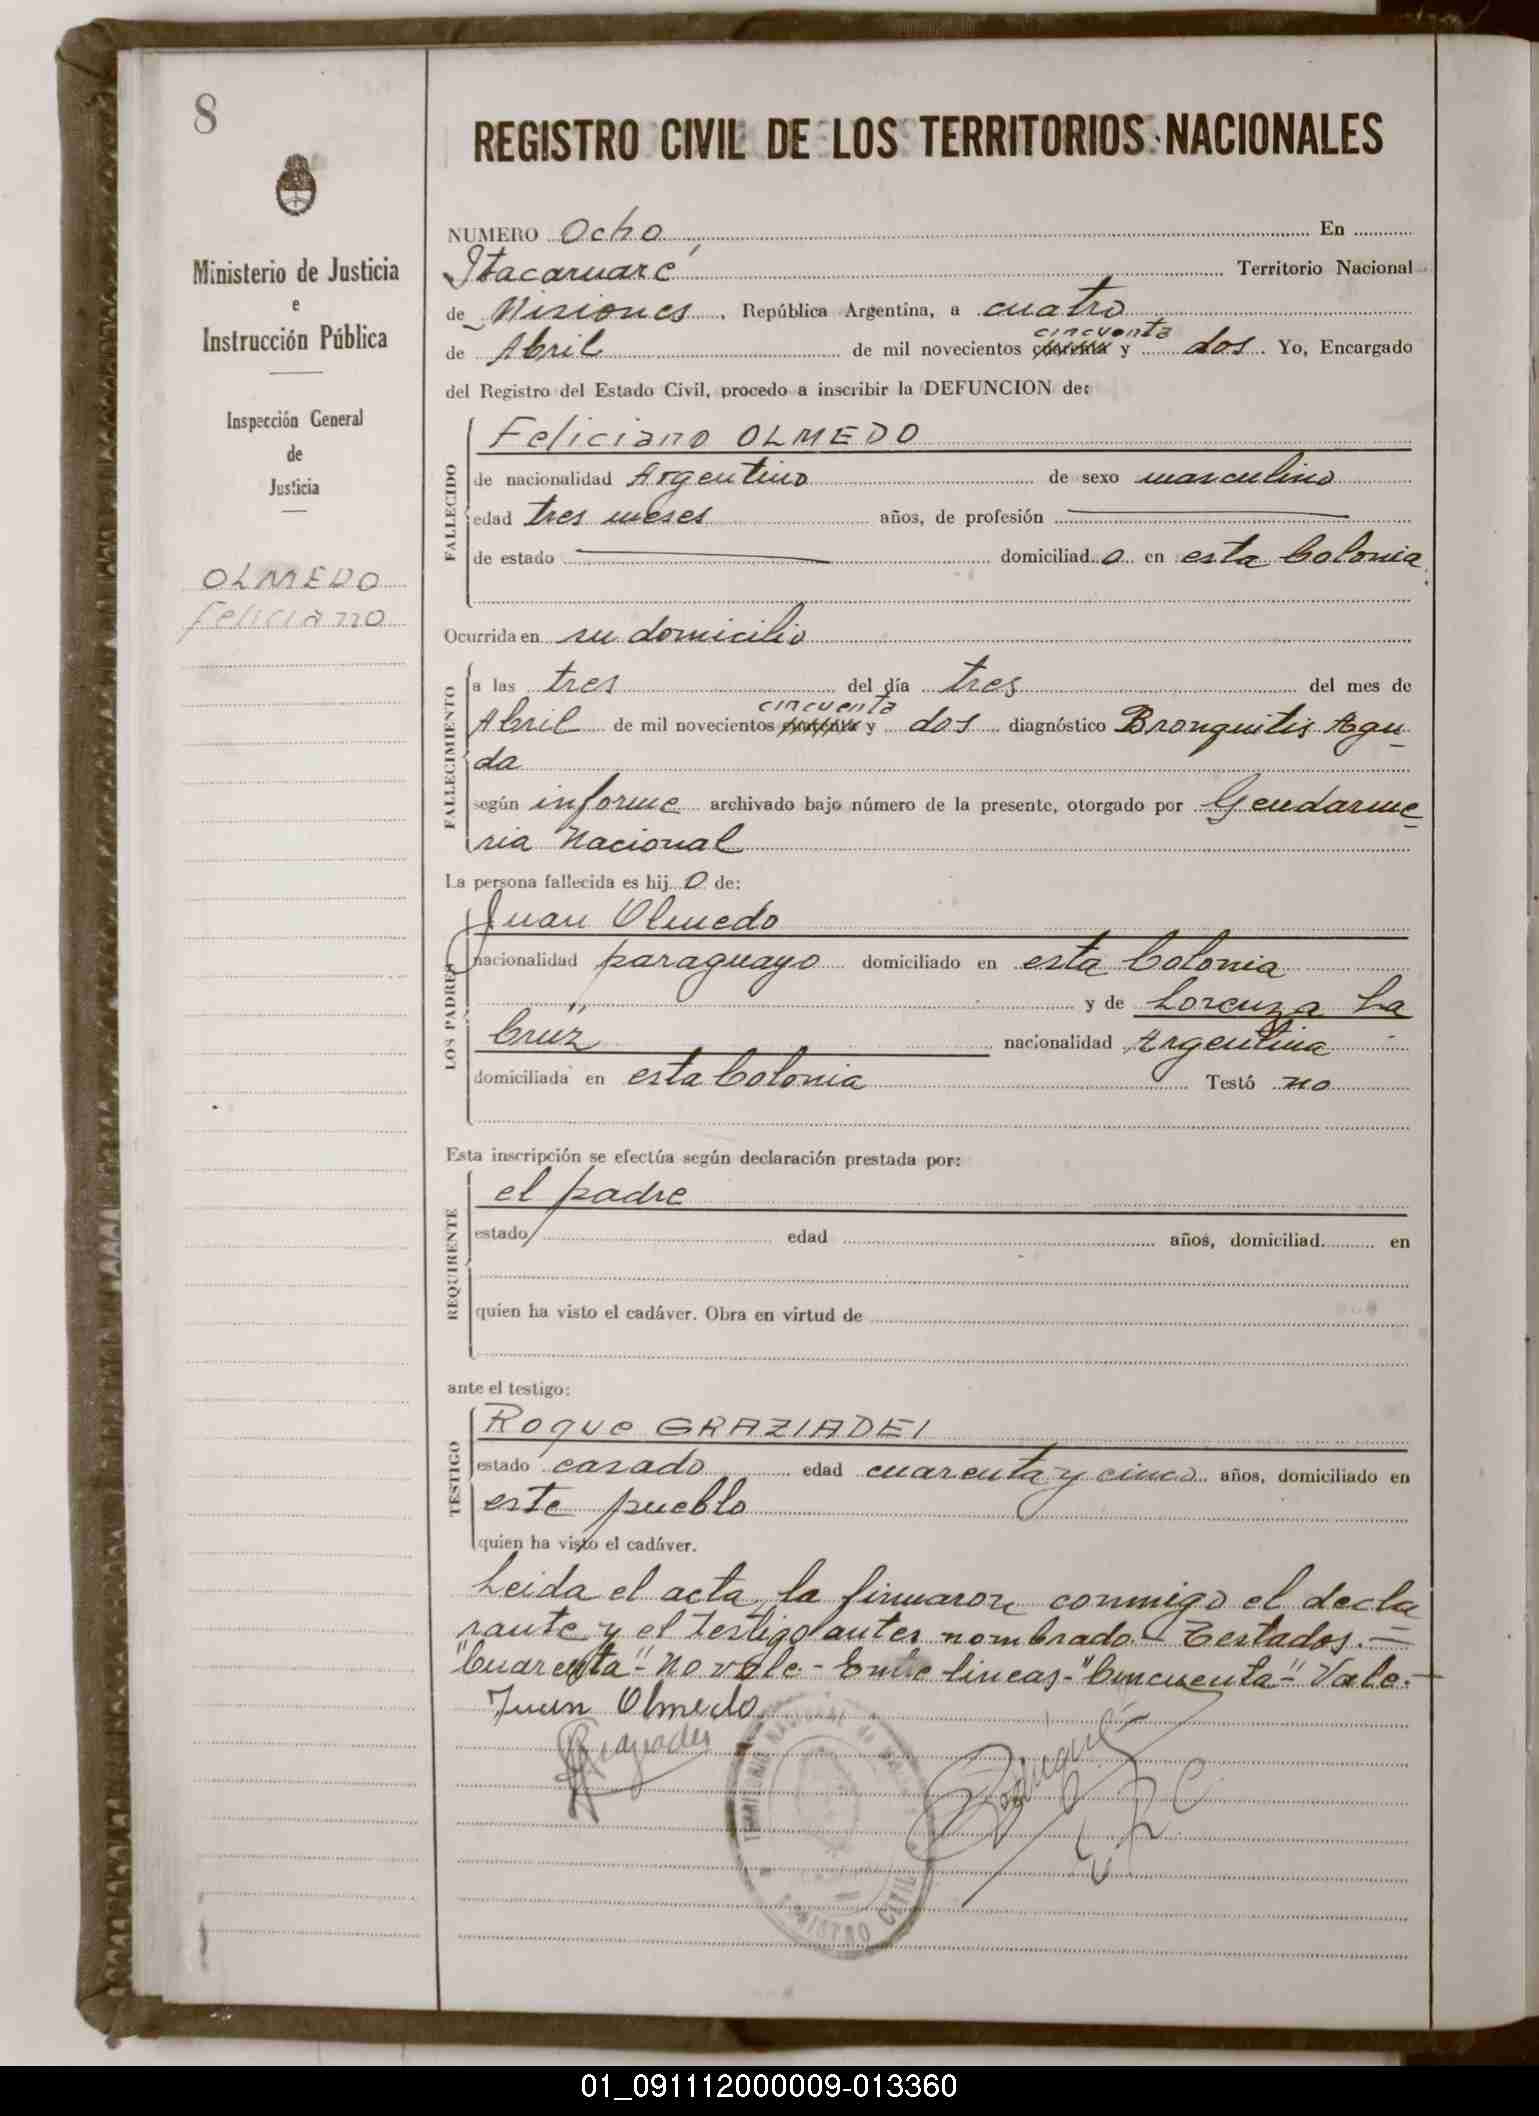 8
REGISTRO CIVIL DE LOS TERRITORIOS NACIONALES
Ministerio de Justicia
e
Instrucción Pública
Inspección General
de
Justicia
OLMEDO
Feliciano
NUMERO Ocho En
Itacaruaré Territorio Nacional
de Misiones, República Argentina, a cuatro
cincuenta
de Abril de mil novecientos cuarenta y dos. Yo, Encargado
del Registro del Estado Civil, procedo a inscribir la DEFUNCION de:
FALLECIDO
Feliciano OLMEDO
de nacionalidad Argentino de sexo masculino
edad tres meses años, de profesión
de estado domiciliado en esta Colonia
Ocurrida en su domicilio
FALLECIMIENTO
a las tres del día tres del mes de
cincuenta
Abril de mil novecientos cuarenta y dos diagnóstico Bronquitis Agu-
da
según informe archivado bajo número de la presente, otorgado por Gendarme-
ria Nacional
La persona fallecida es hijo de:
LOS PADRES
Juan Olmedo
nacionalidad paraguayo domiciliado en esta Colonia
y de Lorenza La
Cruz nacionalidad Argentina
domiciliada en esta Colonia Testó no
Esta inscripción se efectúa según declaración prestada por:
REQUIRENTE
el padre
estado edad años, domiciliad en
quien ha visto el cadáver. Obra en virtud de
ante el testigo:
TESTIGO
Roque GRAZIADEI
estado casado edad cuarenta y cinco años, domiciliado en
este pueblo
quien ha visto el cadáver.
Leida el acta, la firmaron conmigo el decla
rante y el testigo antes nombrado - Testados.=
"Cuarenta"- No vale.- Entre lineas-"Cincuenta"- Vale.-
Juan Olmedo
TERRITORIO NACIONAL de
REGISTRO CIVIL
01_091112000009-013360